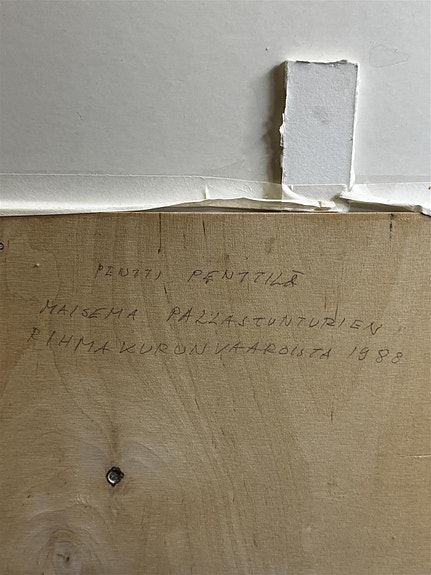 PENTTI PENTTILÄ
MAISEMA PALLASTUNTURIEN
RIHMAKURONVAAROISTA 1988